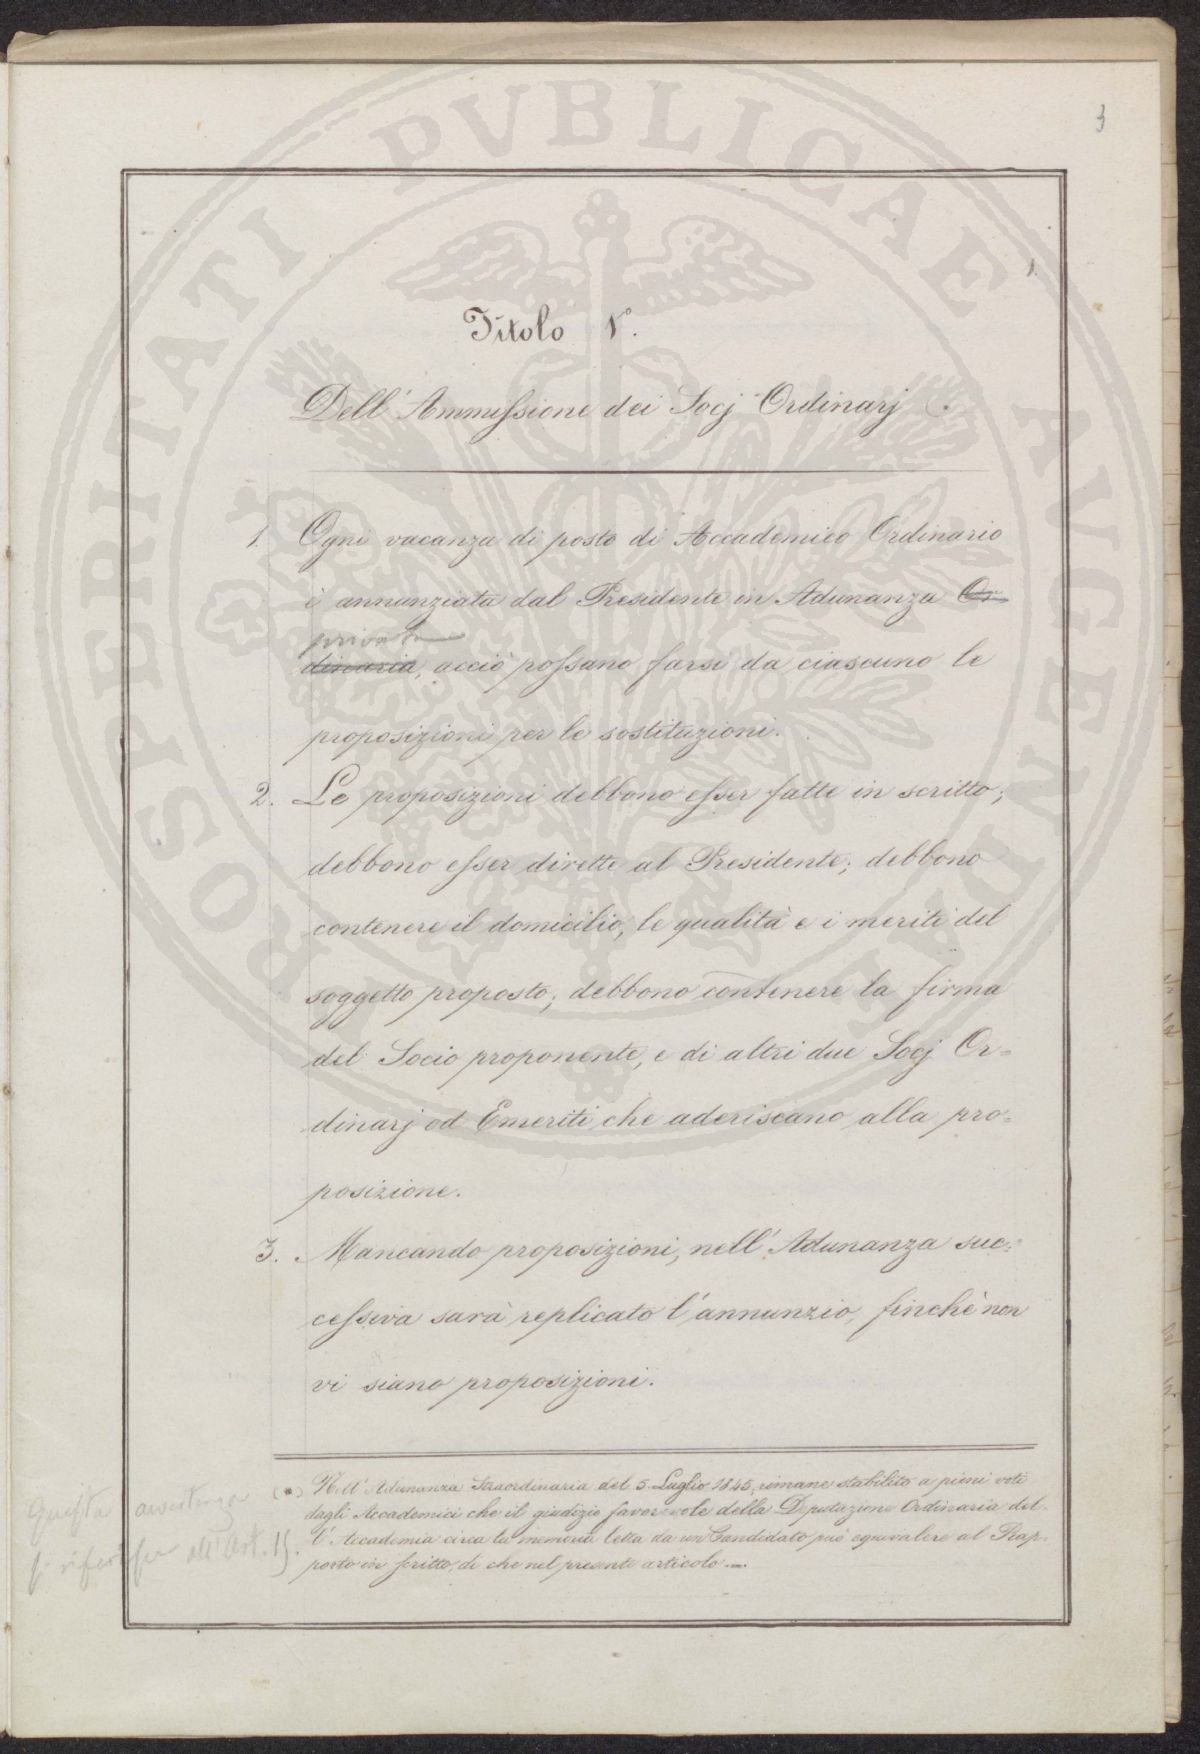 3
1.
Titolo 1º.
Dell'Ammissione dei Socj Ordinarj
1. Ogni vacanza di posto di Accademico Ordinario
è annunziata dal Presidente in Adunanza Or
privata
dinaria, acciò possano farsi da ciascuno le
proposizioni per le sostituzioni.
2. Le proposizioni debbono esser fatte in scritto;
debbono esser dirette al Presidente; debbono
contenere il domicilio, le qualità e i meriti del
soggetto proposto; debbono contenere la firma
del Socio proponente, e di altri due Socj Or=
dinarj od Emeriti che aderiscano alla pro=
posizione.
3. Mancando proposizioni, nell'Adunanza suc=
cessiva sarà replicato l'annunzio, finchè non
vi siano proposizioni.
(*) Nell'Adunanza Straordinaria del 5 Luglio 1845, rimane stabilito a pieni voti
dagli Accademici che il giudizio favorevole della Deputazione Ordinaria del=
l'Accademia circa la memoria letta da un Candidato può equivalere al Rap=
porto in scritto, di che nel presente articolo.
Questa avvertenza
si riferisce all'Art. 15.
PROSPERITATI PVBLICAE AVGENDAE